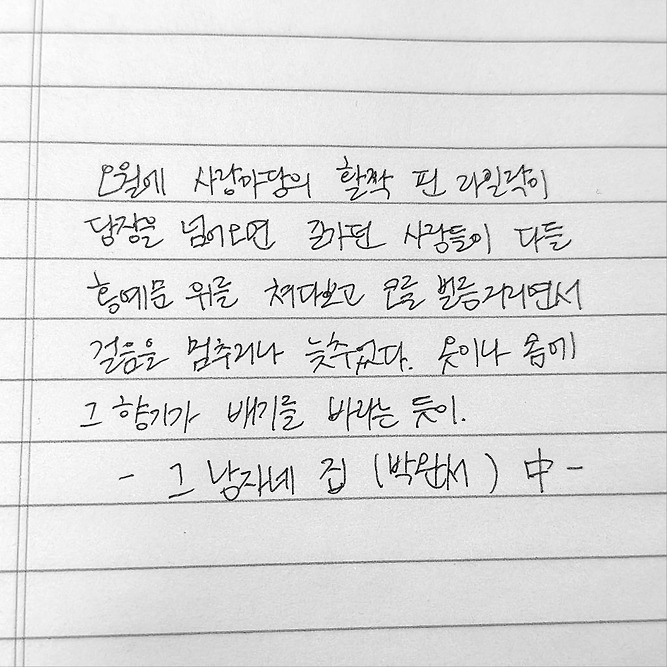 오월에 사랑마당의 활짝 핀 라일락이
담장을 넘어오면 지나가던 사람들이 다들
홍예문 위를 쳐다보고 코를 벌름거리면서
걸음을 멈추거나 늦추었다. 옷이나 몸에
그 향기가 배기를 바라는 듯이.
- 그 남자네 집 (박완서) 中 -